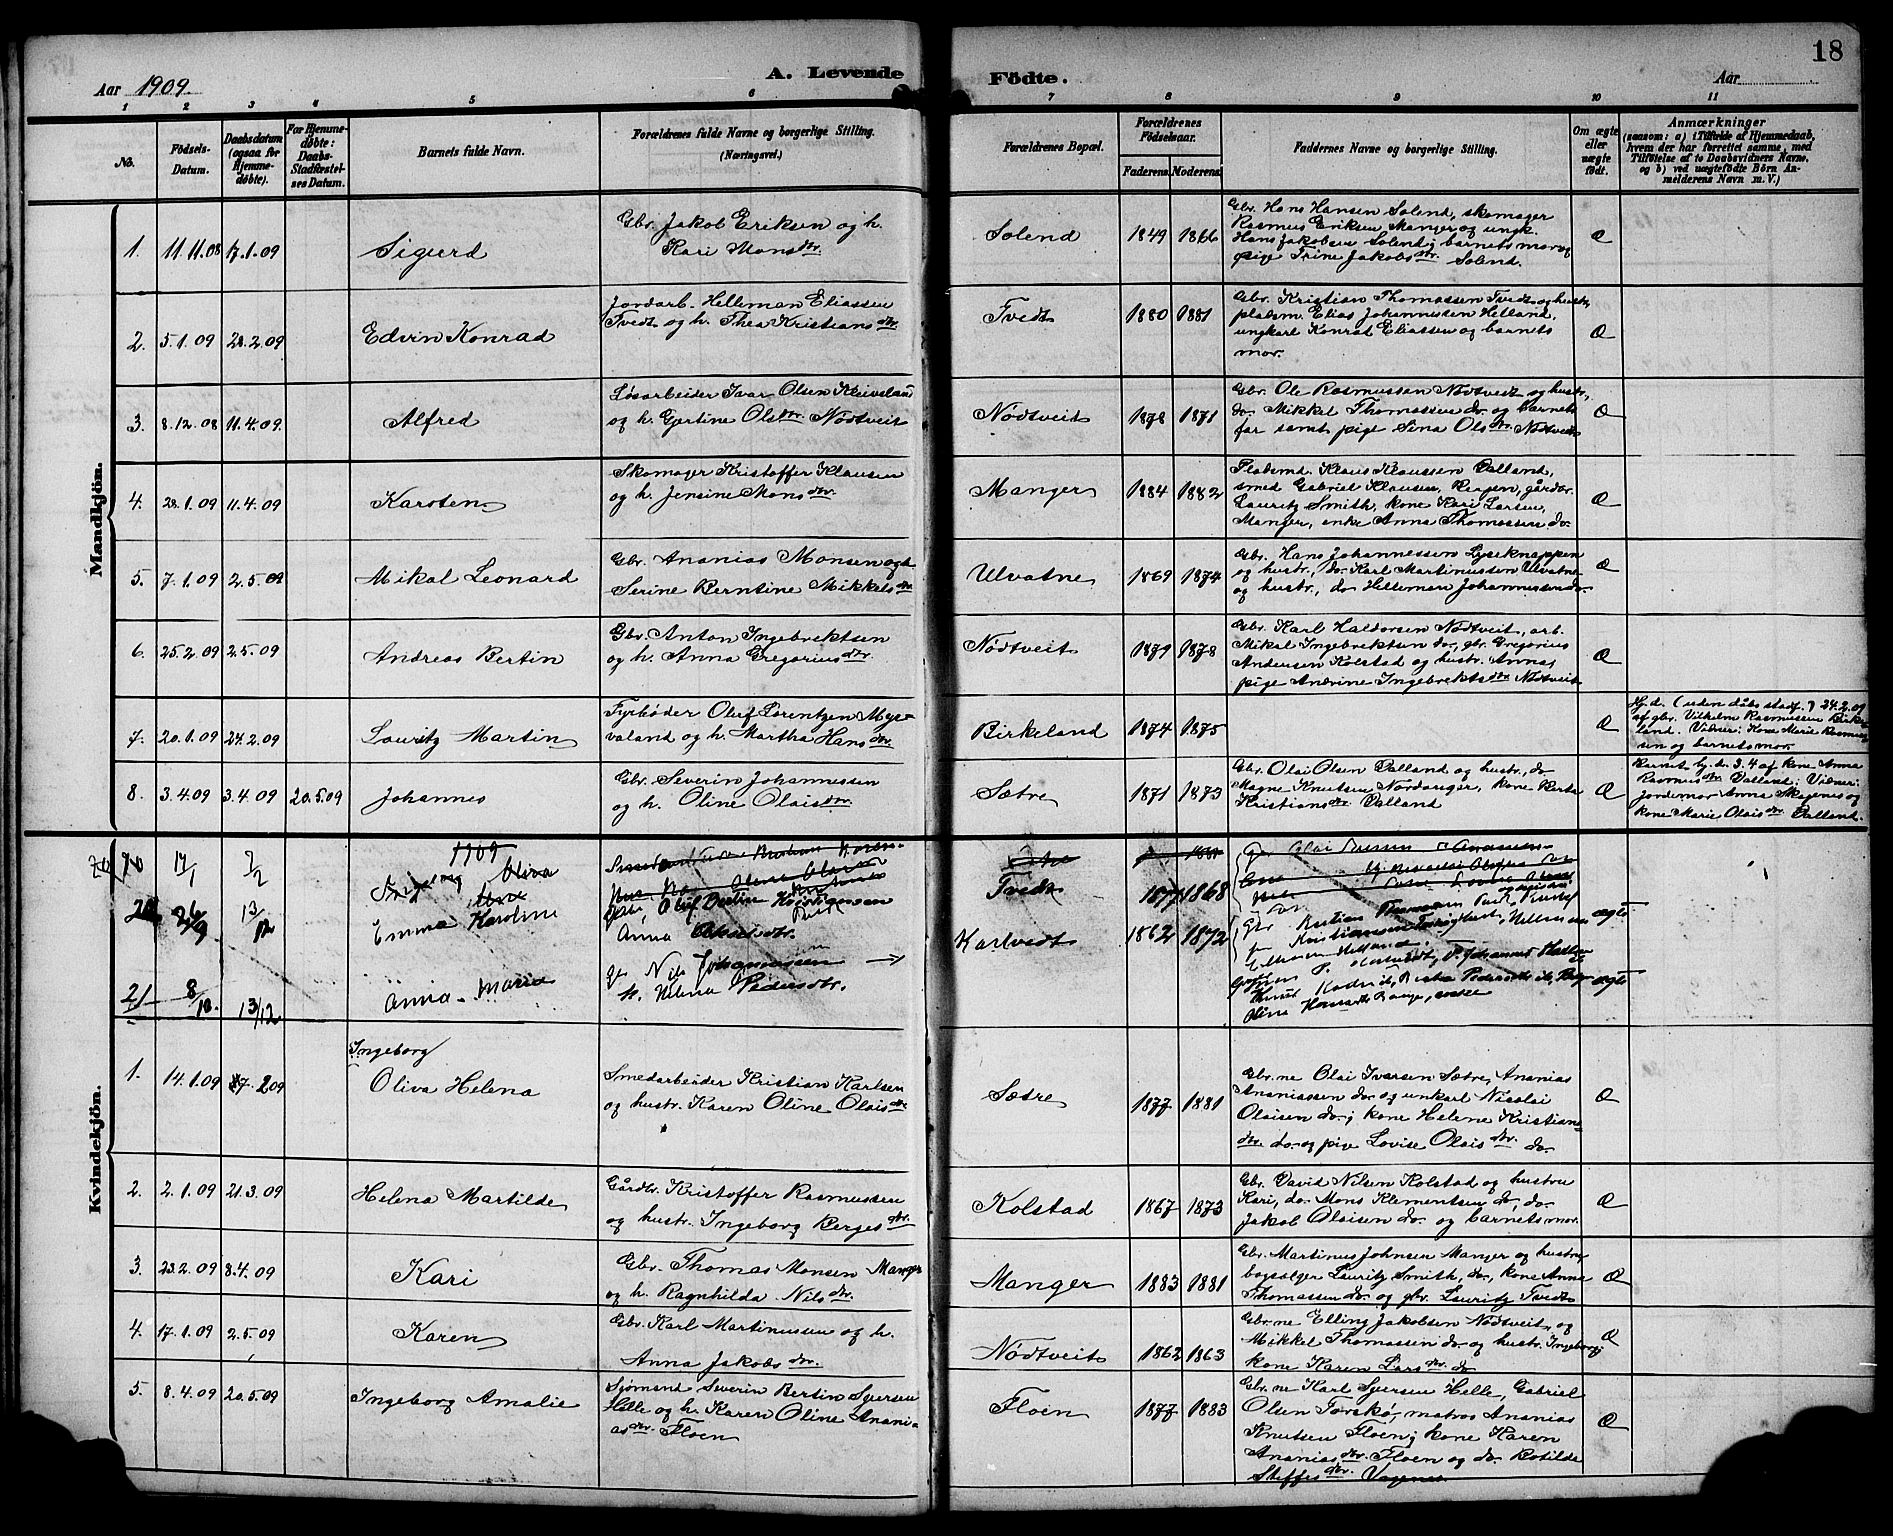 18
A. Levende Födte.
Aar 1909.
Aar
1 2 3 4 5 6 7 8 9 10 11
No.
Födsels-
Datum.
Daabsdatum
(ogsaa för
Hjemme-
döbte).
For Hjemme-
döbte:
Daabs-
Stadfæstel-
ses Datum.
Barnets fulde Navn.
Forældrenes fulde Navne og borgerlige Stilling.
(Næringsvei.)
Forældrenes Bopæl.
Forældrenes
Födselsaar.
Faderens. Moderens.
Faddernes Navne og borgerlige Stilling.
Om ægte
eller
uægte
født.
Anmærkninger
(saasom: a) i Tilfælde af Hjemmedaab,
hvem der har forrettet samme, med
Tilføielse af to Daabsvidners Navne,
og b) ved uægtefödte Börn An-
melderens Navn m. V.)
Mandkjön.
1. 11.11.08 17.1.09 Sigurd
Gbr. Jakob Eriksen og h.
Kari Monsdtr.
Solend 1849 1866
Gbr. Hans Hansen Solend, skomager
Rasmus Eriksen Manger og ungk.
Hans Jakobsen Solend; barnets mor og
pige Trine Jakobsdtr. Solend.
Æ
2. 5.1.09 28.2.09 Edvin Konrad
Jordarb. Helleman Eliassen
Tvedt og h. Thea Kristiansdtr.
Tvedt 1880 1881
Gbr. Kristian Thomassen Tvedt og hustr,
pladsm. Elias Johannessen Helland,
ungkarl Konrad Eliassen og barnets
mor.
Æ
3. 8.12.08 11.4.09. Alfred
Løsarbeider Ivar Olsen Kleiveland
og h. Gjertine Olsdtr. Nödtveit
Nödtveit 1878 1871
Gbr. Ole Rasmussen Nödtvedt og hustr,
do. Mikkel Thomassen do. og barnets
far samt pige Sina Olsdtr. Nödtvedt
Æ
4. 28.1.09 11.4.09 Karsten
Skomager Kristoffer Klausen
og h. Jensine Monsdtr.
Manger 1884 1882
Pladsmd. Klaus Klaussen Dalland,
smed Gabriel Klausen, Bergen, gårdbr.
Lauritz Smith, kone Kari Larsen,
Manger, enke Anna Thomassen do.
Æ
5. 7.1.09 2.5.09 Mikal Leonard
Gbr. Ananias Monsen og h
Serine Berntine Mikkelsdtr.
Ulvatne 1869 1874
Gbr. Hans Johannessen Lyseknappen
og hustr., do. Karl Martinussen Ulvatne
og hustr., do Helleman Johannessen do.
Æ
6. 25.2.09 2.5.09 Andreas Bertin
Gbr. Anton Ingebrektsen
og h. Anna Gregoriusdtr.
Nödtveit 1879 1878
Gbr. Karl Haldorsen Nödtveit, arb.
Mikal Ingebrektsen do., gbr. Gregorius
Andersen Kolstad og hustr. Anna,
pige Andrine Ingebrektsdtr. Nödtveit
Æ
7. 20.1.09 24.2.09 Lauritz Martin
Fyrböder Oluf Lorentzen Myr-
valand og h. Martha Hansdtr.
Birkeland 1874 1875
Æ
Hj.d. (uden dåbsstadf.) 24.2.09
af gbr. Vilhelm Rasmussen Birke-
land. Vidner: Kone Marie Rasmus-
sen og barnets mor.
8. 3.4.09 3.4.09 20.5.09 Johannes
Gbr. Severin Johannessen
og h. Oline Olaisdtr.
Sætre 1871 1873
Gbr. Olai Olsen Dalland og hustr., do
Magne Knutsen Nordanger, kone Berta
Kristiansdtr. Dalland
Æ
Barnet hj.d. 3.4 af kone Anna
Rasmusdtr. Dalland; Vidner:
Jordemor Anna Skagenes og
kone Marie Olaisdtr. Dalland.
1909
Ingeborg Oliva
20 26/9 13/12 Emma Karoline
Oluf Bertin Kristiansen
Anna
Tvedt 1877 1868
ægte
21 8/10. 13/12 Anna Maria
Nils Johannessen
h. Helena Pedersdtr.
Karlvedt 1862 1872
ægte
Kvindekjön.
1. 14.1.09 7.2.09
Ingeborg
Oliva Helena
Smedarbeider Kristian Karlsen
og hustr. Karen Oline Olaisdtr
Sætre 1877 1881
Gbr.ne Olai Iversen Sætre, Ananias
Ananiassen do. og unkarl Nicolai
Olaisen do.; kone Helene Kristians-
dtr. do. og pige Lovise Olaisdtr. do.
Æ
2. 2.1.09 21.3.09 Helena Martilde
Gårdbr. Kristoffer Rasmussen
og hustr. Ingeborg Bergesdtr.
Kolstad 1867 1873
Gbr. David Nilsen Kolstad og hustru
Kari, do. Mons Klementsen do, do.
Jakob Olaisen do. og barnets mor.
Æ
3. 23.2.09 8.4.09 Kari
Gbr. Thomas Monsen Manger
og h. Ragnhilda Nilsdtr.
Manger 1883 1881
Gbr. Martinus Johnsen Manger og hustru,
bogsælger Lauritz Smith, do., kone Anna
Thomassen do. og gbr. Lauritz Tvedt
Æ
4. 17.1.09 2.5.09 Karen
Gbr. Karl Martinussen og h.
Anna Jakobsdtr.
Nödtveit 1862 1863
Gbr.ne Elling Jakobsen Nödtveit, og
Mikkel Thomassen do. og hustr. Ingeborg;
kone Karen Larsdtr. do
Æ
5. 8.4.09 20.5.09 Ingeborg Amalie
Sjømand Severin Bertin Sjursen
Helle og h. Karen Oline Anani-
asdtr. Floen
Floen 1877 1883
Gbr.ne Karl Sjursen Helle, Gabriel
Olsen Torskø, matros Ananias
Knutsen Floen; kone Karen
Ananiasdtr. Floen og do. Botilde
Steffesdtr. Vagenes
Æ